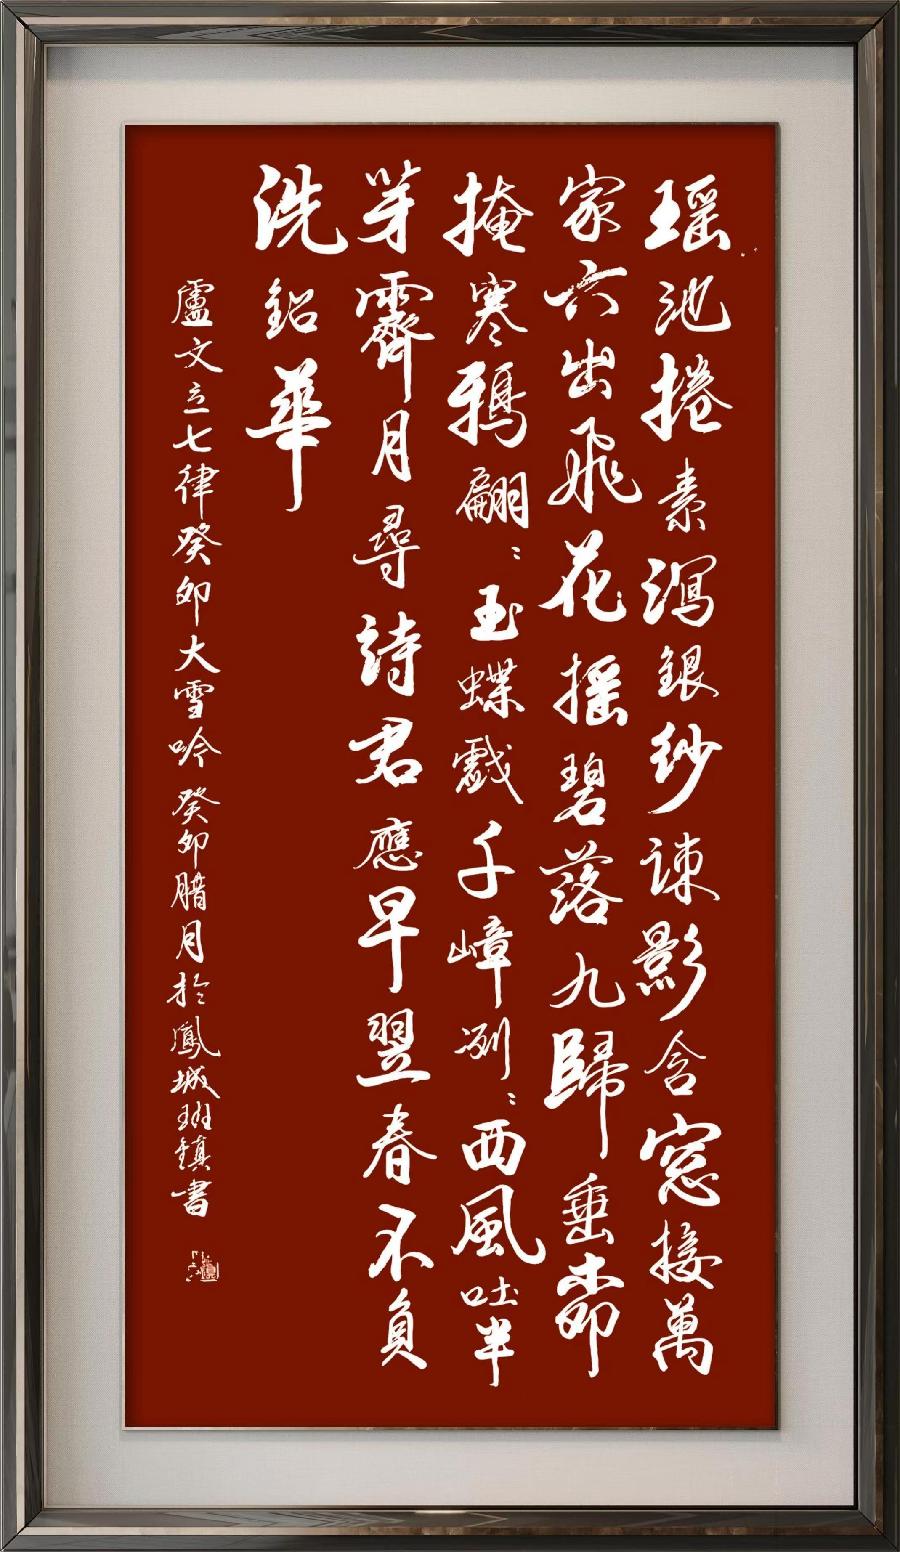 瑶池捲素瀉銀紗疎影含窓接萬
家六出飛花摇碧落九歸垂柳
掩寒鴉翩〻玉蝶戲千嶂冽〻西風吐半
芽霽月尋詩君應早翌春不負
洗鉛華
盧文立七律癸卯大雪吟 癸卯腊月於鳳城班鎮書